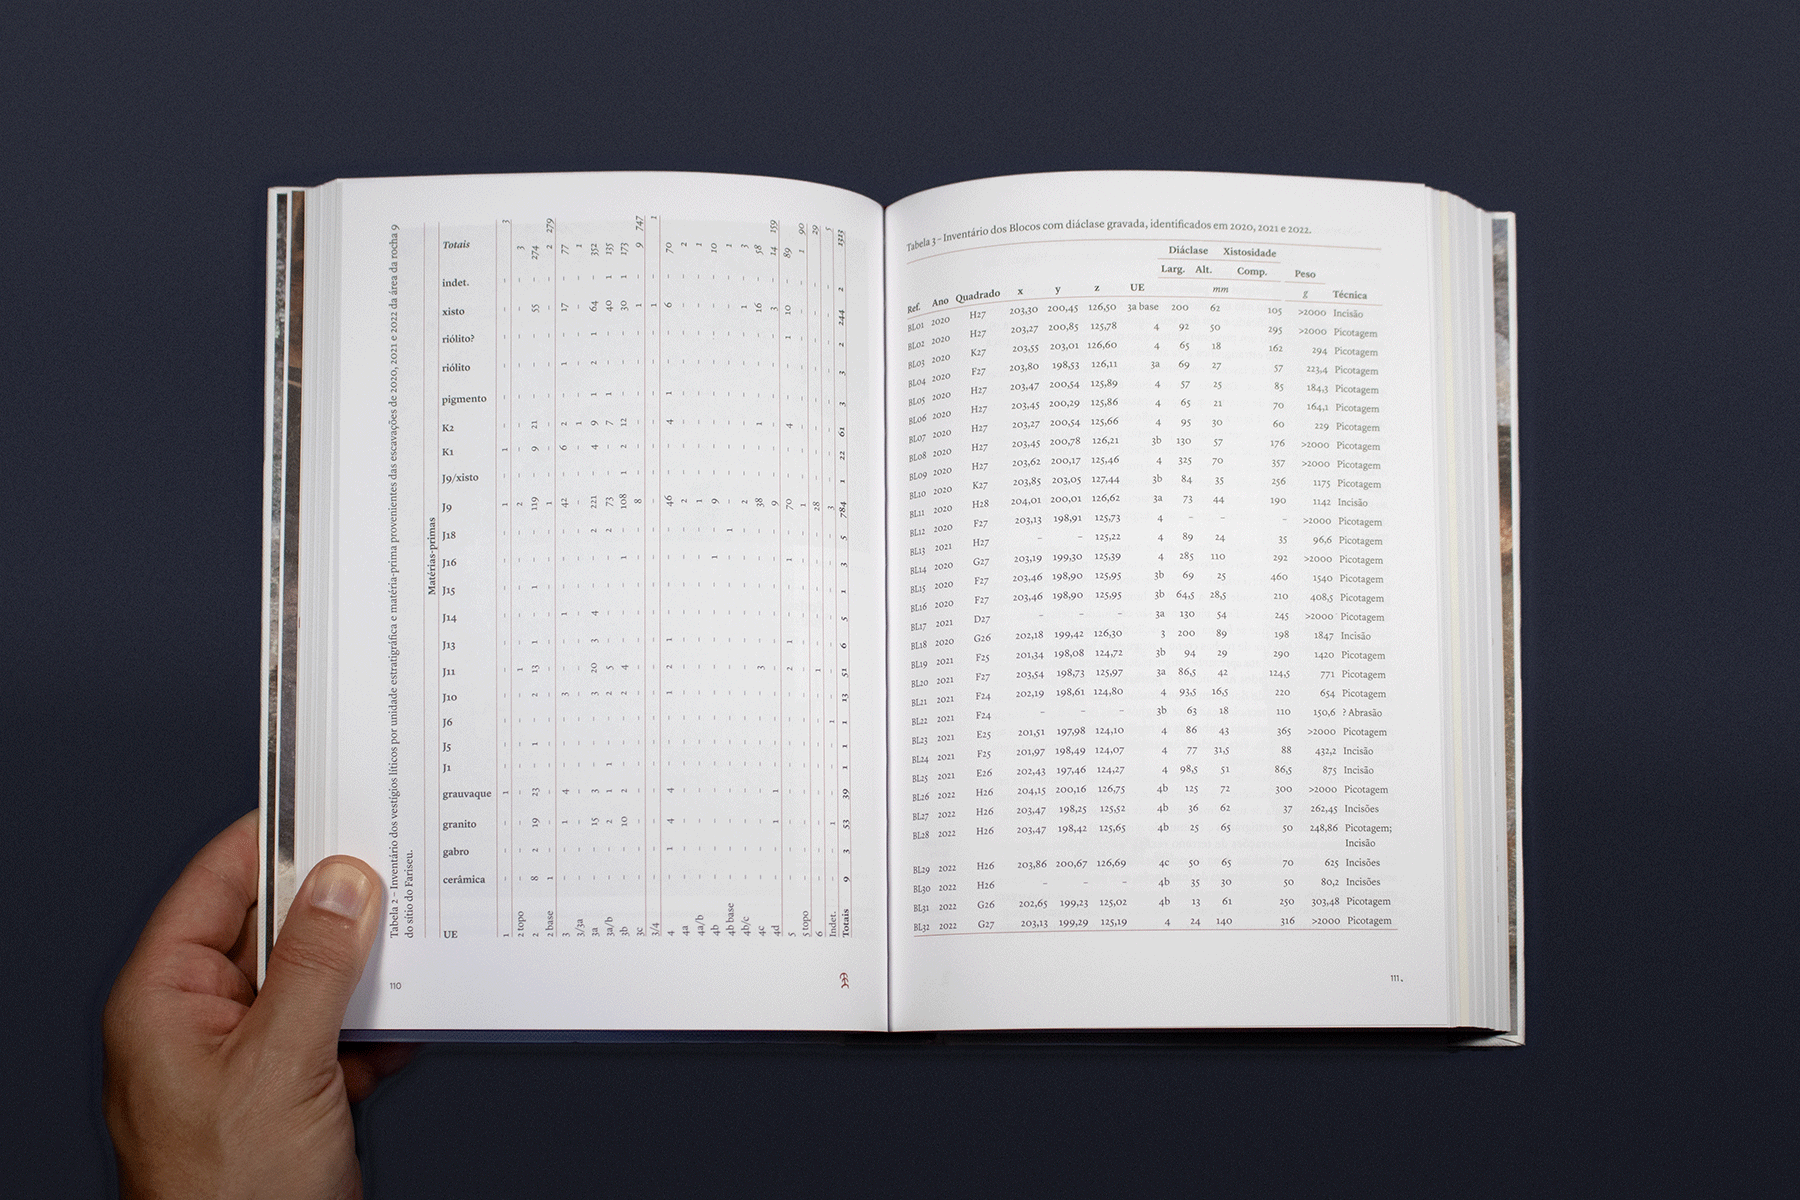 Tabela 2 – Inventário dos vestígios líticos por unidade estratigráfica e matéria-prima provenientes das escavações de 2020, 2021 e 2022 da área da rocha 9
do sítio do Fariseu.
Matérias-primas
UE cerâmica gabro granito grauvaque J1 J5 J6 J10 J11 J13 J14 J15 J16 J18 J9 J9/xisto K1 K2 pigmento riólito riólito? xisto indet. Totais
1 – – – 1 – – – – – – – – – – 1 – 1 – – – – – – 3
2 topo – – – – – – – – 1 – – – – – 2 – – – – – – – – 3
2 8 2 19 23 – 1 – 2 13 1 – 1 – – 119 – 9 21 – – – 55 – 274
2 base 1 – – – – – – – – – – – – – 1 – – – – – – – – 2 279
3 – – 1 4 – – – 3 – – 1 – – – 42 – 6 2 – 1 – 17 – 77
3/3a – – – – – – – – – – – – – – – – – 1 – – – – – 1
3a – – 15 3 – – – 3 20 3 4 – – 2 221 – 4 9 1 2 1 64 – 352
3a/b – – 2 1 1 – – 2 5 – – – – 2 73 – – 7 1 – – 40 1 135
3b – – 10 2 – – – 2 4 – – – 1 – 108 1 2 12 – – – 30 1 173
3c – – – – – – – – – – – – – – 8 – – – – – – 1 – 9 747
3/4 – – – – – – – – – – – – – – – – – – – – – 1 – 1
4 – 1 4 4 – – – 1 2 1 – – – – 46 – – 4 1 – – 6 – 70
4a – – – – – – – – – – – – – – 2 – – – – – – – – 2
4a/b – – – – – – – – – – – – – – 1 – – – – – – – – 1
4b – – – – – – – – – – – – 1 – 9 – – – – – – – – 10
4b base – – – – – – – – – – – – – 1 – – – – – – – – – 1
4b/c – – – – – – – – – – – – – – 2 – – – – – – 1 – 3
4c – – – – – – – – 3 – – – – – 38 – – 1 – – – 16 – 58
4d – – 1 1 – – – – – – – – – – 9 – – – – – – 3 – 14 159
5 – – – – – – – – 2 1 – – 1 – 70 – – 4 – – 1 10 – 89
5 topo – – – – – – – – – – – – – – 1 – – – – – – – – 1 90
6 – – – – – – – – 1 – – – – – 28 – – – – – – – – 29
Indet. – – 1 – – – 1 – – – – – – – 3 – – – – – – – – 5
Totais 9 3 53 39 1 1 1 13 51 6 5 1 3 5 784 1 22 61 3 3 2 244 2 1313
110
Tabela 3 – Inventário dos Blocos com diáclase gravada, identificados em 2020, 2021 e 2022.
Diáclase Xistosidade
Larg. Alt. Comp. Peso
Ref. Ano Quadrado x y z UE mm g Técnica
BL01 2020 H27 203,30 200,45 126,50 3a base 200 62 105 >2000 Incisão
BL02 2020 H27 203,27 200,85 125,78 4 92 50 295 >2000 Picotagem
BL03 2020 K27 203,55 203,01 126,60 4 65 18 162 294 Picotagem
BL04 2020 F27 203,80 198,53 126,11 3a 69 27 57 223,4 Picotagem
BL05 2020 H27 203,47 200,54 125,89 4 57 25 85 184,3 Picotagem
BL06 2020 H27 203,45 200,29 125,86 4 65 21 70 164,1 Picotagem
BL07 2020 H27 203,27 200,54 125,66 4 95 30 60 229 Picotagem
BL08 2020 H27 203,45 200,78 126,21 3b 130 57 176 >2000 Picotagem
BL09 2020 H27 203,62 200,17 125,46 4 325 70 357 >2000 Picotagem
BL10 2020 K27 203,85 203,05 127,44 3b 84 35 256 1175 Picotagem
BL11 2020 H28 204,01 200,01 126,62 3a 73 44 190 1142 Incisão
BL12 2020 F27 203,13 198,91 125,73 4 – – – >2000 Picotagem
BL13 2021 H27 – – 125,22 4 89 24 35 96,6 Picotagem
BL14 2020 G27 203,19 199,30 125,39 4 285 110 292 >2000 Picotagem
BL15 2020 F27 203,46 198,90 125,95 3b 69 25 460 1540 Picotagem
BL16 2020 F27 203,46 198,90 125,95 3b 64,5 28,5 210 408,5 Picotagem
BL17 2021 D27 – – – 3a 130 54 245 >2000 Picotagem
BL18 2020 G26 202,18 199,42 126,30 3 200 89 198 1847 Incisão
BL19 2021 F25 201,34 198,08 124,72 3b 94 29 290 1420 Picotagem
BL20 2021 F27 203,54 198,73 125,97 3a 86,5 42 124,5 771 Picotagem
BL21 2021 F24 202,19 198,61 124,80 4 93,5 16,5 220 654 Picotagem
BL22 2021 F24 – – – 3b 63 18 110 150,6 ? Abrasão
BL23 2021 E25 201,51 197,98 124,10 4 86 43 365 >2000 Picotagem
BL24 2021 F25 201,97 198,49 124,07 4 77 31,5 88 432,2 Incisão
BL25 2021 E26 202,43 197,46 124,27 4 98,5 51 86,5 875 Incisão
BL26 2022 H26 204,15 200,16 126,75 4b 125 72 300 >2000 Picotagem
BL27 2022 H26 203,47 198,25 125,52 4b 36 62 37 262,45 Incisões
BL28 2022 H26 203,47 198,42 125,65 4b 25 65 50 248,86 Picotagem;
Incisão
BL29 2022 H26 203,86 200,67 126,69 4c 50 65 70 625 Incisões
BL30 2022 H26 – – – 4b 35 30 50 80,2 Incisões
BL31 2022 G26 202,65 199,23 125,02 4b 13 61 250 303,48 Picotagem
BL32 2022 G27 203,13 199,29 125,19 4 24 140 316 >2000 Picotagem
111